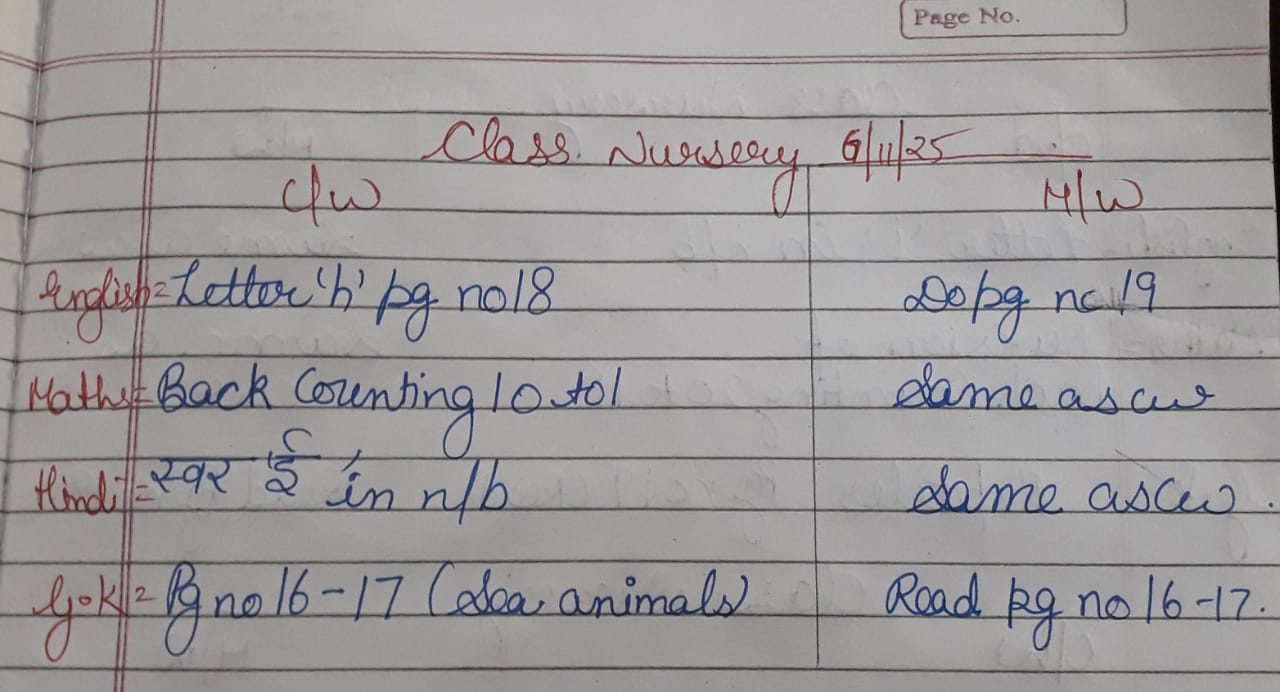 Page No.
Class. Nursery 6/11/25
C/W H/W
English = Letter 'h' pg no 18 Do pg no 19
Maths = Back Counting 10 to 1 Same as cw
Hindi = स्वर ई in n/b Same as cw.
G.K = Pg no 16-17 (Sea animals) Read pg no 16-17.